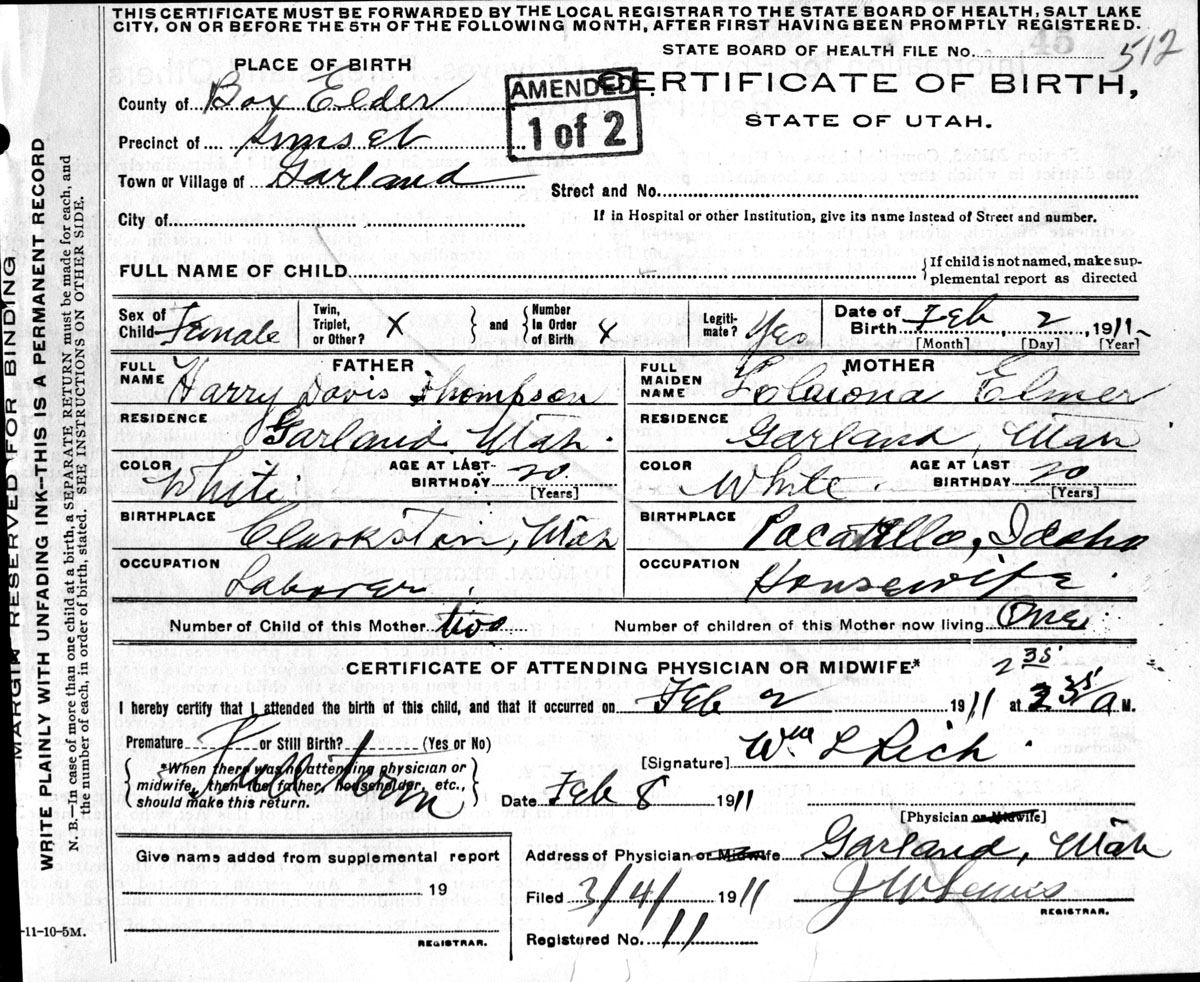 THIS CERTIFICATE MUST BE FORWARDED BY THE LOCAL REGISTRAR TO THE STATE BOARD OF HEALTH, SALT LAKE
CITY, ON OR BEFORE THE 5TH OF THE FOLLOWING MONTH, AFTER FIRST HAVING BEEN PROMPTLY REGISTERED.
STATE BOARD OF HEALTH FILE No. 45 512
PLACE OF BIRTH
CERTIFICATE OF BIRTH,
STATE OF UTAH.
AMENDED
1 of 2
County of Box Elder
Precinct of Sunset
Town or Village of Garland
Street and No.
City of
If in Hospital or other Institution, give its name instead of Street and number.
FULL NAME OF CHILD
{If child is not named, make sup-
plemental report as directed
Sex of Child Female
Twin, Triplet, or Other? X
and Number in Order of Birth X
Legiti-mate? Yes
Date of Birth Feb 2, 1911
[Month] [Day] [Year]
FATHER
FULL NAME Harry Davis Thompson
RESIDENCE Garland Utah.
COLOR White
AGE AT LAST BIRTHDAY 20
[Years]
BIRTHPLACE Clarkston, Utah
OCCUPATION Laborer.
MOTHER
FULL MAIDEN NAME Elmer
RESIDENCE Garland, Utah
COLOR White
AGE AT LAST BIRTHDAY 20
[Years]
BIRTHPLACE Pacatello, Idaho
OCCUPATION Housewife.
Number of Child of this Mother two
Number of children of this Mother now living One
CERTIFICATE OF ATTENDING PHYSICIAN OR MIDWIFE*
2 35
I hereby certify that I attended the birth of this child, and that it occurred on Feb 2 1911 at 2 35 a M.
Premature or Still Birth? (Yes or No)
Full term
*When there was no attending physician or midwife, then the father, householder, etc., should make this return.
[Signature] Wm L Rich
Date Feb 8 1911
[Physician or Midwife]
Give name added from supplemental report
19
REGISTRAR.
Address of Physician or Midwife Garland, Utah
Filed 3/4/ 1911
J W Lewis
REGISTRAR.
Registered No. 11
-11-10-5M.
MARGIN RESERVED FOR BINDING
WRITE PLAINLY WITH UNFADING INK—THIS IS A PERMANENT RECORD
N. B.—In case of more than one child at a birth, a SEPARATE RETURN must be made for each, and
the number of each, in order of birth, stated. SEE INSTRUCTIONS ON OTHER SIDE.